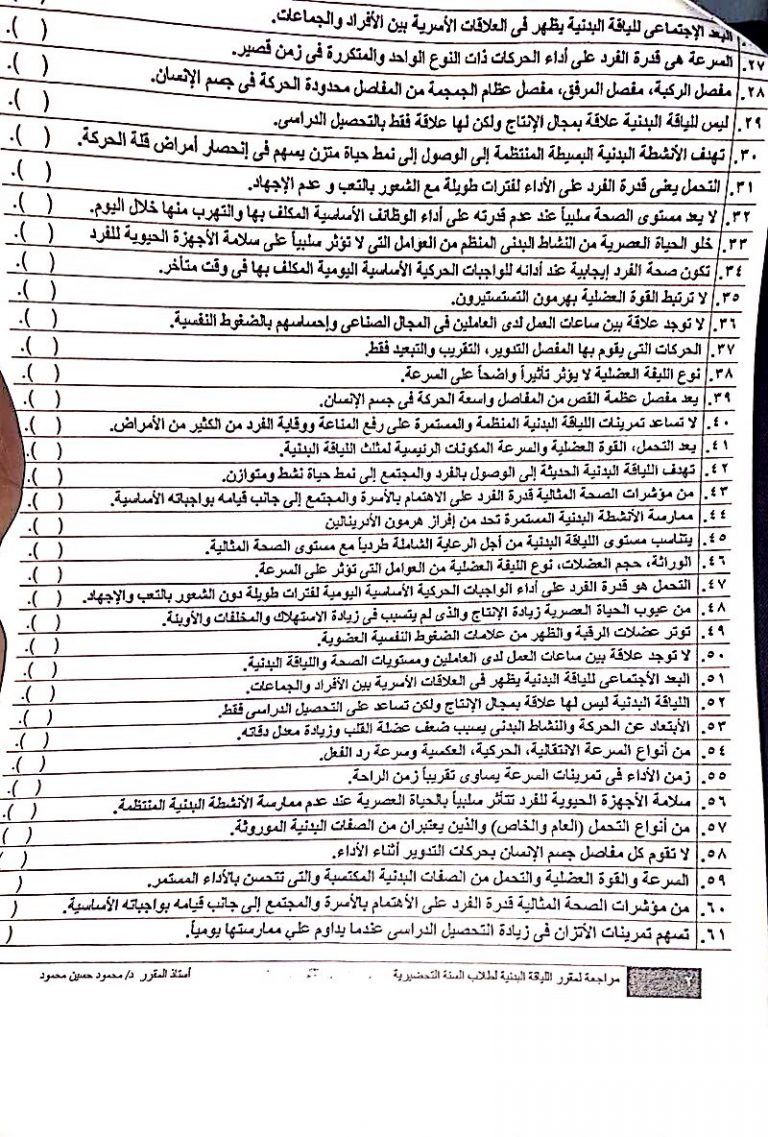 البعد الإجتماعى للياقة البدنية يظهر فى العلاقات الأسرية بين الأفراد والجماعات. ( ).
٢٧. السرعة هى قدرة الفرد على أداء الحركات ذات النوع الواحد والمتكررة فى زمن قصير. ( ).
٢٨. مفصل الركبة، مفصل المرفق، مفصل عظام الجمجمة من المفاصل محدودة الحركة فى جسم الإنسان. ( ).
٢٩. ليس للياقة البدنية علاقة بمجال الإنتاج ولكن لها علاقة فقط بالتحصيل الدراسى. ( ).
٣٠. تهدف الأنشطة البدنية البسيطة المنتظمة إلى الوصول إلى نمط حياة متزن يسهم فى إنحصار أمراض قلة الحركة. ( ).
٣١. التحمل يعنى قدرة الفرد على الأداء لفترات طويلة مع الشعور بالتعب و عدم الإجهاد. ( ).
٣٢. لا يعد مستوى الصحة سلبياً عند عدم قدرته على أداء الوظائف الأساسية المكلف بها والتهرب منها خلال اليوم. ( ).
٣٣. خلو الحياة العصرية من النشاط البدنى المنظم من العوامل التى لا تؤثر سلبياً على سلامة الأجهزة الحيوية للفرد ( ).
٣٤. تكون صحة الفرد إيجابية عند أدائه للواجبات الحركية الأساسية اليومية المكلف بها فى وقت متأخر. ( ).
٣٥. لا ترتبط القوة العضلية بهرمون التستستيرون. ( ).
٣٦. لا توجد علاقة بين ساعات العمل لدى العاملين فى المجال الصناعى وإحساسهم بالضغوط النفسية. ( ).
٣٧. الحركات التى يقوم بها المفصل التدوير، التقريب والتبعيد فقط. ( ).
٣٨. نوع الليفة العضلية لا يؤثر تأثيراً واضحاً على السرعة. ( ).
٣٩. يعد مفصل عظمة القص من المفاصل واسعة الحركة فى جسم الإنسان. ( ).
٤٠. لا تساعد تمرينات اللياقة البدنية المنظمة والمستمرة على رفع المناعة ووقاية الفرد من الكثير من الأمراض. ( ).
٤١. يعد التحمل، القوة العضلية والسرعة المكونات الرئيسية لمثلث اللياقة البدنية. ( ).
٤٢. تهدف اللياقة البدنية الحديثة إلى الوصول بالفرد والمجتمع إلى نمط حياة نشط ومتوازن. ( ).
٤٣. من مؤشرات الصحة المثالية قدرة الفرد على الاهتمام بالأسرة والمجتمع إلى جانب قيامه بواجباته الأساسية. ( ).
٤٤. ممارسة الأنشطة البدنية المستمرة تحد من إفراز هرمون الأدرينالين ( ).
٤٥. يتناسب مستوى اللياقة البدنية من أجل الرعاية الشاملة طردياً مع مستوى الصحة المثالية. ( ).
٤٦. الوراثة، حجم العضلات، نوع الليفة العضلية من العوامل التى تؤثر على السرعة. ( ).
٤٧. التحمل هو قدرة الفرد على أداء الواجبات الحركية الأساسية اليومية لفترات طويلة دون الشعور بالتعب والإجهاد. ( ).
٤٨. من عيوب الحياة العصرية زيادة الإنتاج والذى لم يتسبب فى زيادة الاستهلاك والمخلفات والأوبئة. ( ).
٤٩. توتر عضلات الرقبة والظهر من علامات الضغوط النفسية العضوية. ( ).
٥٠. لا توجد علاقة بين ساعات العمل لدى العاملين ومستويات الصحة واللياقة البدنية. ( ).
٥١. البعد الأجتماعى للياقة البدنية يظهر فى العلاقات الأسرية بين الأفراد والجماعات. ( ).
٥٢. اللياقة البدنية ليس لها علاقة بمجال الإنتاج ولكن تساعد على التحصيل الدراسى فقط. ( ).
٥٣. الأبتعاد عن الحركة والنشاط البدنى يسبب ضعف عضلة القلب وزيادة معدل دقاته. ( ).
٥٤. من أنواع السرعة الانتقالية، الحركية، العكسية وسرعة رد الفعل. ( ).
٥٥. زمن الأداء فى تمرينات السرعة يساوى تقريباً زمن الراحة. ( ).
٥٦. سلامة الأجهزة الحيوية للفرد تتأثر سلبياً بالحياة العصرية عند عدم ممارسة الأنشطة البدنية المنتظمة. ( ).
٥٧. من أنواع التحمل (العام والخاص) والذين يعتبران من الصفات البدنية الموروثة. ( )
٥٨. لا تقوم كل مفاصل جسم الإنسان بحركات التدوير أثناء الأداء. ( )
٥٩. السرعة والقوة العضلية والتحمل من الصفات البدنية المكتسبة والتى تتحسن بالأداء المستمر. (
٦٠. من مؤشرات الصحة المثالية قدرة الفرد على الأهتمام بالأسرة والمجتمع إلى جانب قيامه بواجباته الأساسية. (
٦١. تسهم تمرينات الأتزان فى زيادة التحصيل الدراسى عندما يداوم علي ممارستها يومياً. (
مراجعة لمقرر اللياقة البدنية لطلاب السنة التحضيرية أستاذ المقرر د/ محمود حسين محمود